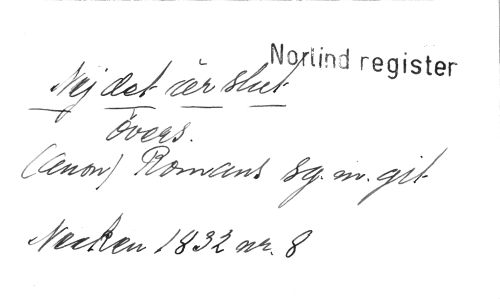 Norlind register
Nej det är slut
övers.
(anon) Romans sg. m. git
Necken 1832 nr. 8